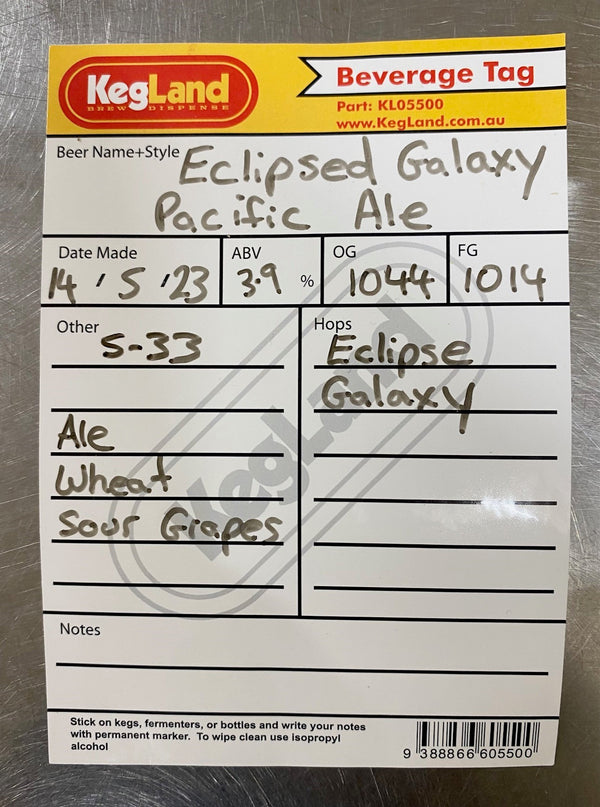 KegLand
BREW DISPENSE
Beverage Tag
Part: KL05500
www.KegLand.com.au
Beer Name+Style Eclipsed Galaxy
Pacific Ale
Date Made ABV OG FG
14 / 5 / 23 3.9 % 1044 1014
Other Hops
S-33 Eclipse
Galaxy
Ale
Wheat
Sour Grapes
KegLand
Notes
Stick on kegs, fermenters, or bottles and write your notes
with permanent marker. To wipe clean use isopropyl
alcohol
9 388866 605500